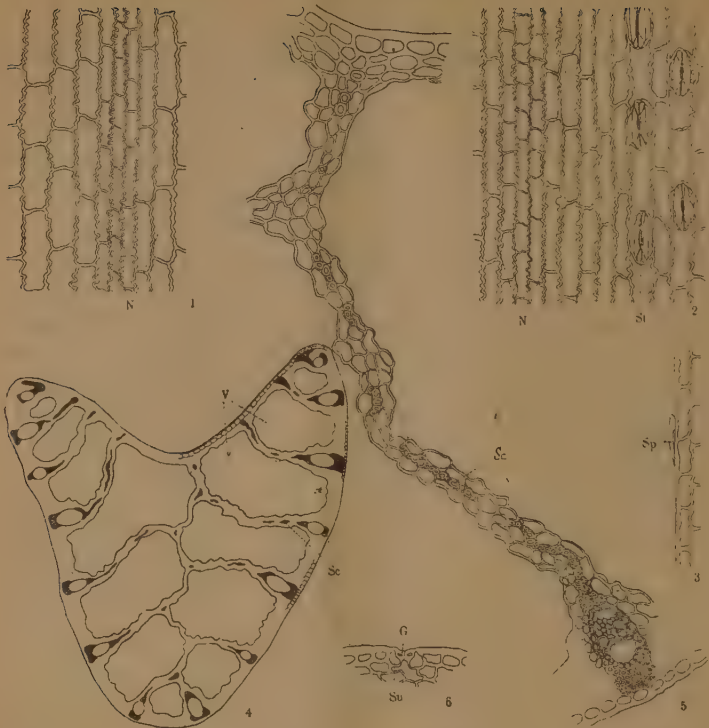 N 1
N St 2
V
Sc
Sp
3
Sc
4
G
6
5